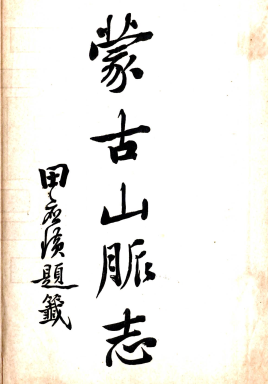 蒙古山脈志
田應璜題籤